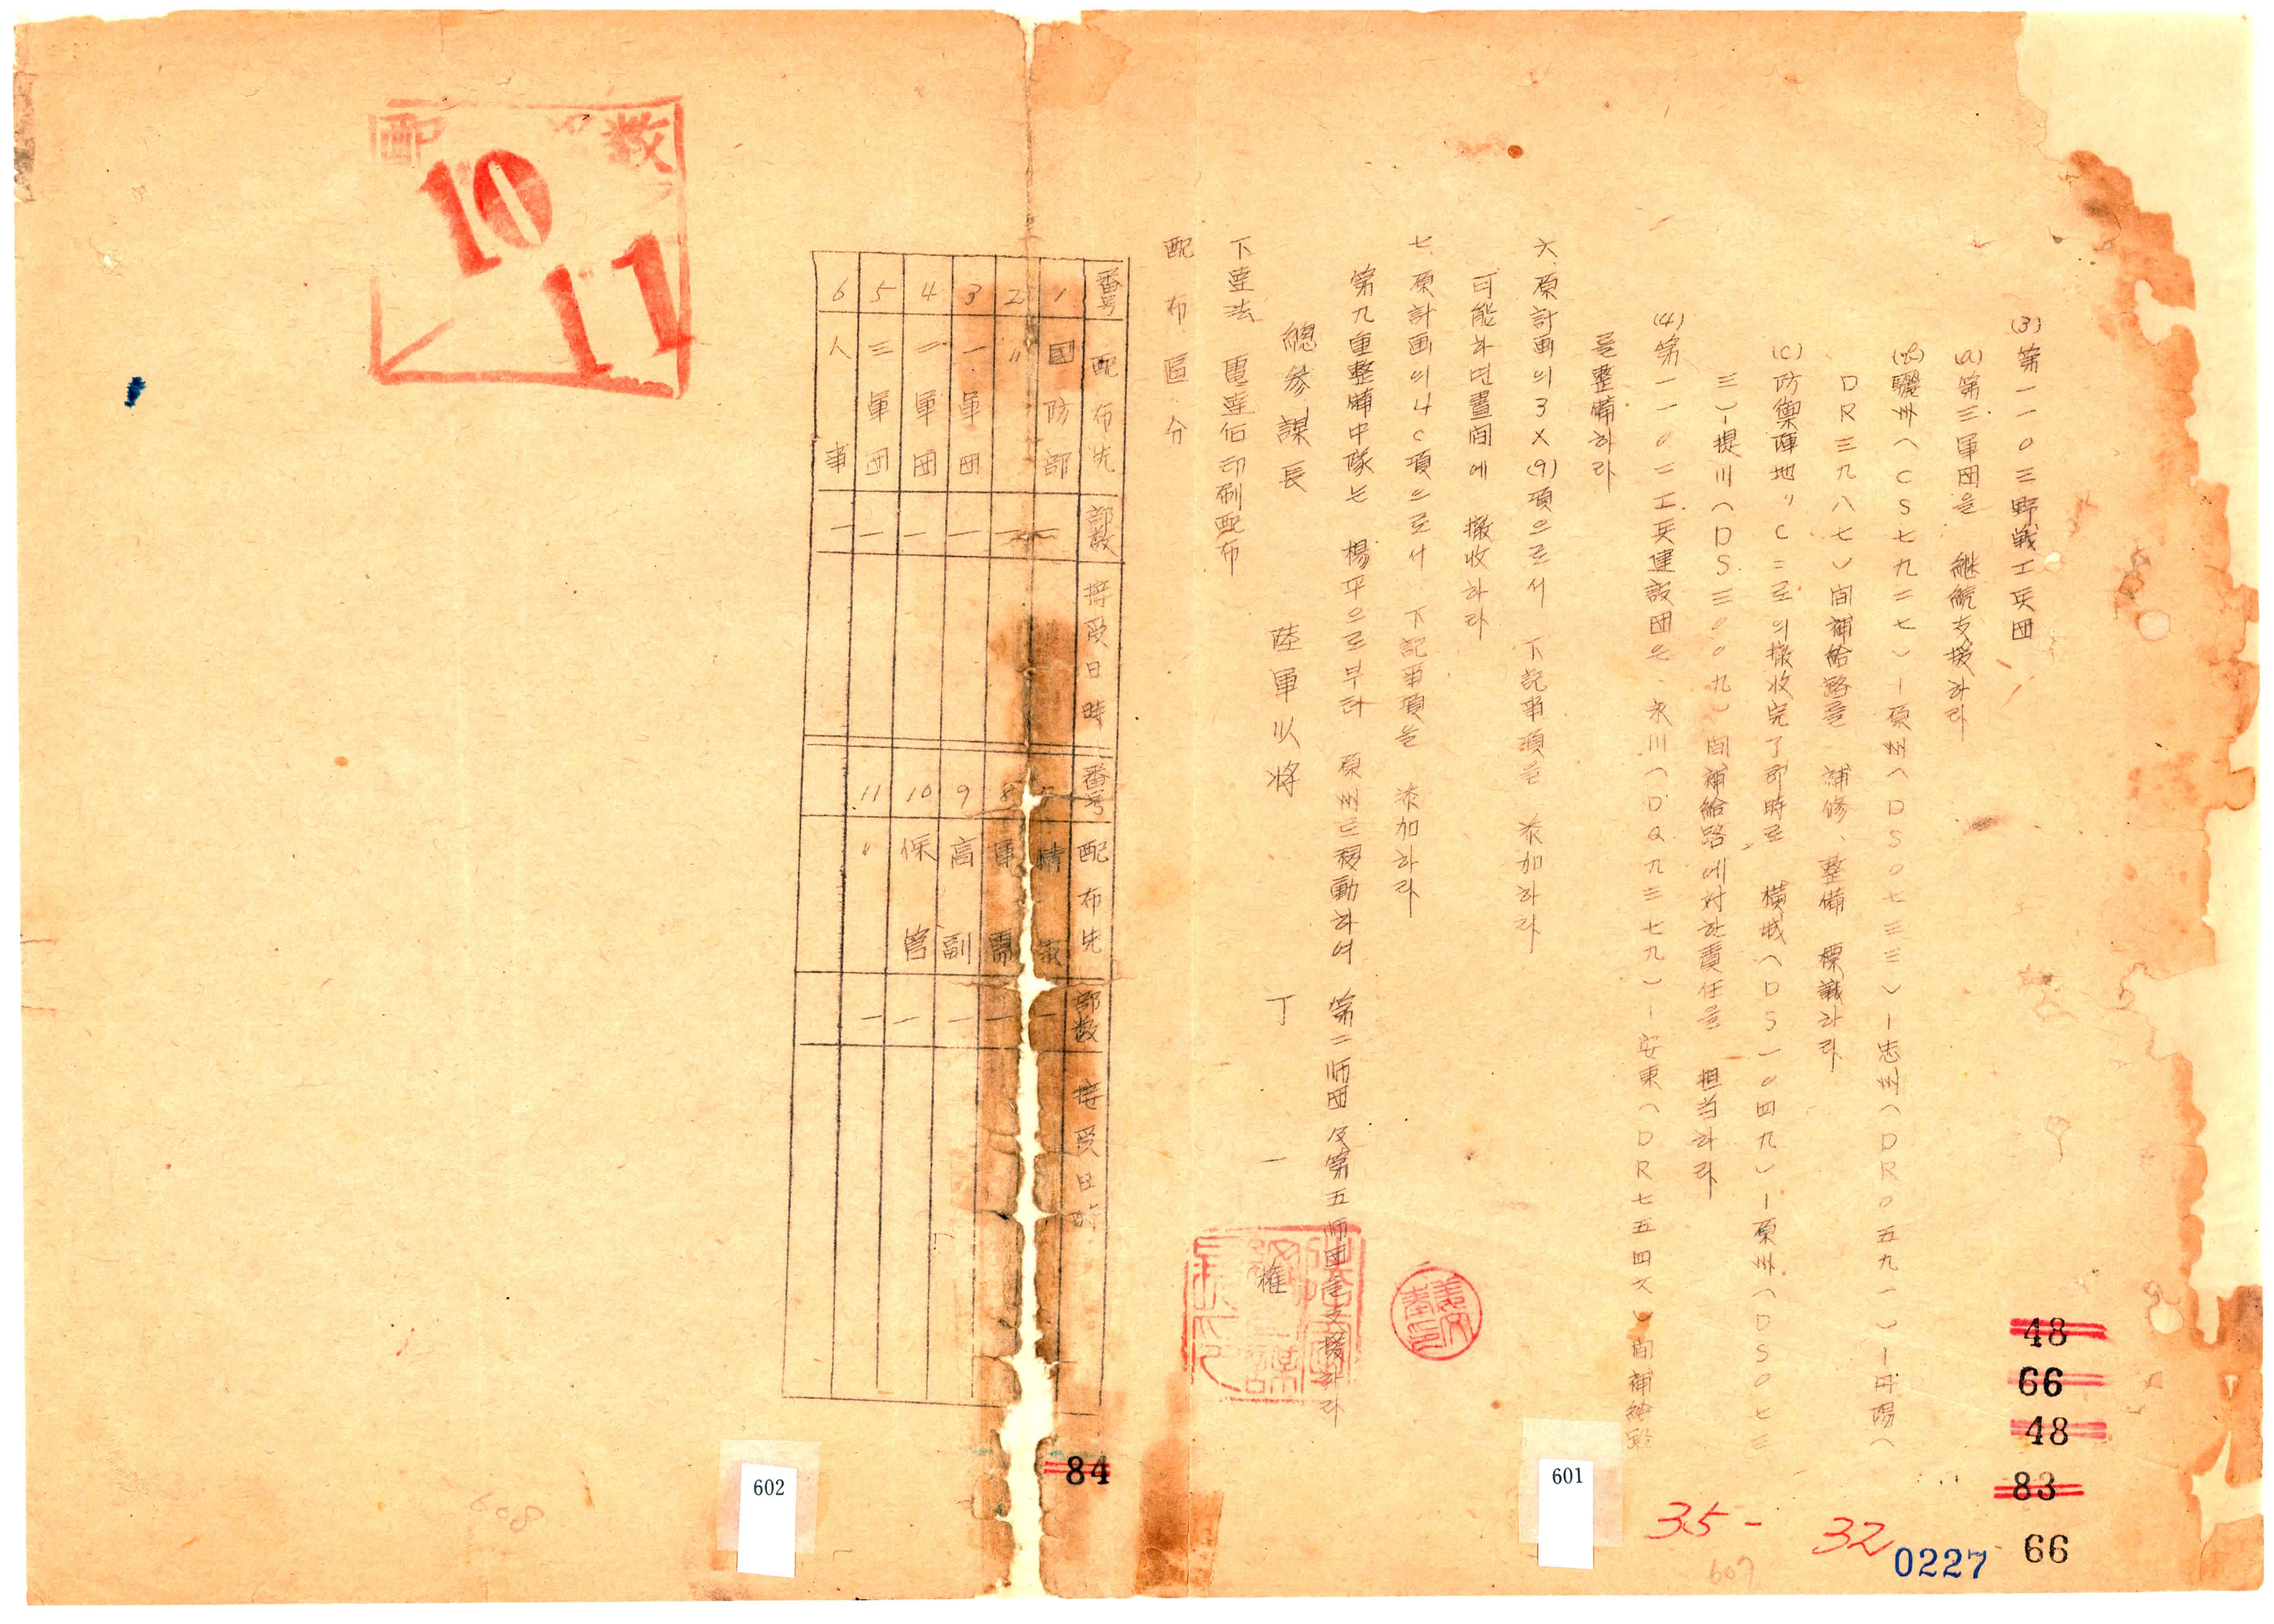 (3) 第一一0三野戰工兵団
(a) 第三軍団을 継続支援하라
(b) 驪州(CS七九二七)-原州(DS0七三三)-忠州(DR0五九一)-丹陽(
DR三九八七)間補給路를 補修、整備 標識하라
(C) 防禦陣地"C"로의 撤收完了即時로 橫城(DS一0四九)-原州(DS0七三
三)-提川(DS三00九)間補給路에対한責任을 担当하라
(4) 第一一0二工兵建設団은 永川(DQ九三七九)-安東(DR七五四六)間補給路
를整備하라
六、原計画의3X(9)項으로서 下記事項을 添加하라
可能하면晝間에 撤收하라
七、原計画의4C項으로서 下記事項을 添加하라
第九重整備中隊는 楊平으로부터 原州로移動하여 第二師団及第五師団을支援하라
總參謀長 陸軍少将 丁一權
下達法 電達后印刷配布
配布區分
番号 配布先 部数 接受日時 番号 配布先 部数 接受日時
1 國防部 一 情報 一
2 〃 一 8 軍需 一
3 一軍団 一 9 高副 一
4 二軍団 一 10 保管 一
5 三軍団 一 11 〃 一
6 人事 一
配 数
10
11
48
66
48
83
66
84
35-
32
0227
601
602
607
608